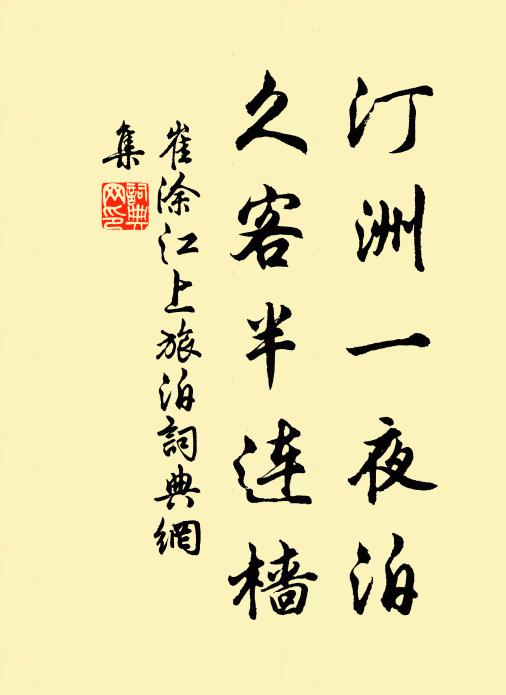 汀洲一夜泊
久客半連檣
崔涂江上旅泊詞典網
集
詞典網印